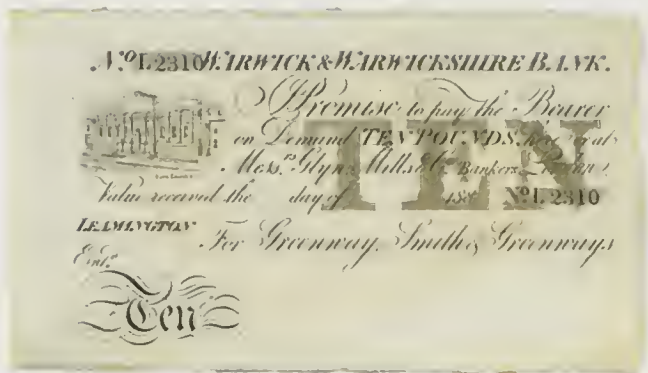 No. L2310 WARWICK & WARWICKSHIRE BANK.
I Promise to pay the Bearer
on Demand TEN POUNDS, here or at
Messrs. Glyn, Mills & Co. Bankers, London.
Value received the day of 188 No. L 2310
TEN
LEAMINGTON
For Greenway, Smith & Greenways
Entd.
Ten